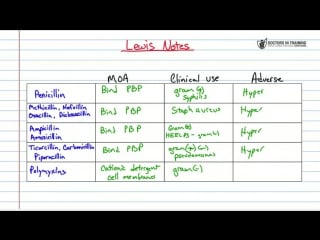 Lewis Notes
DOCTORS IN TRAINING
MOA Clinical use Adverse
Penicillin Bind PBP gram (+) Hyper
Syphilis
Methicillin, Nafcillin Bind PBP Staph aureus Hyper
Oxacillin, Dicloxacillin
Ampicillin Bind PBP Gram (+) Hyper
Amoxicillin HEELPS - gram(-)
Ticarcillin, Carbenicillin Bind PBP gram (+) (-) Hyper
Piperacillin pseudomonas
Polymyxins Cationic detergent gram(-)
cell membranes